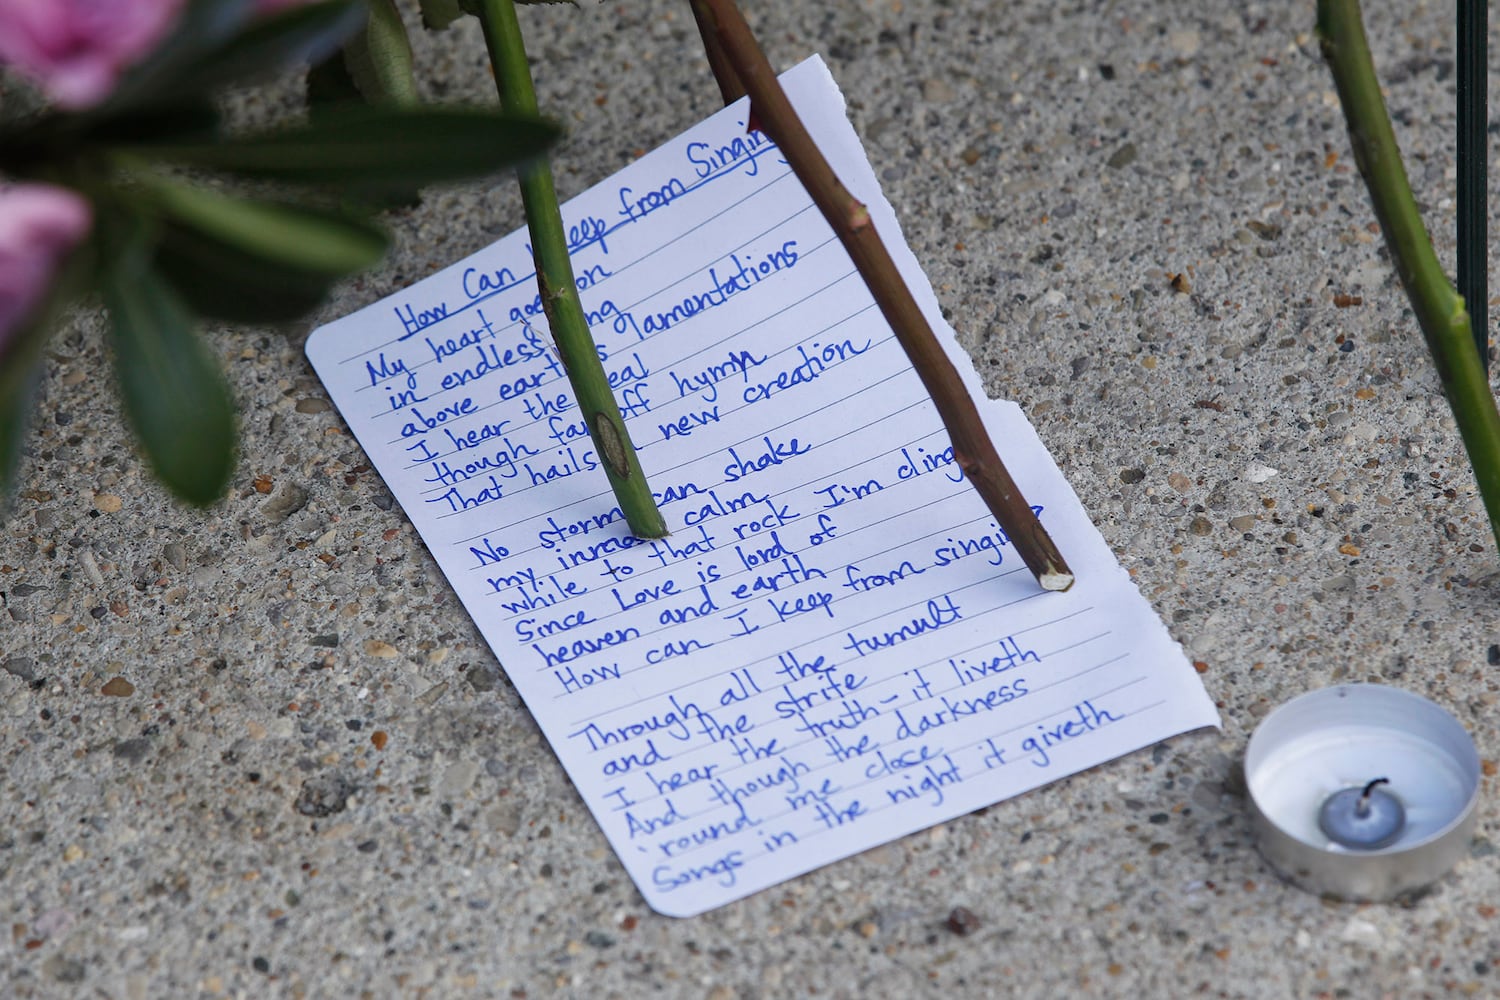 How Can Keep from Singing
My heart goes on
in endless song
above earth's lamentations
I hear the real
though far off hymn
That hails a new creation
No storm can shake
my inmost calm
while to that rock I'm cling
Since Love is lord of
heaven and earth
How can I keep from singing?
Through all the tumult
and the strife
I hear the truth - it liveth
And though the darkness
'round me close
Songs in the night it giveth